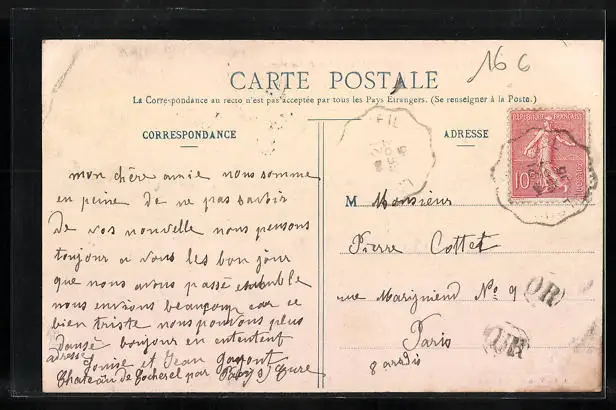 16 6
CARTE POSTALE
La Correspondance au recto n'est pas acceptée par tous les Pays Etrangers. (Se renseigner à la Poste.)
CORRESPONDANCE
mon chère amie nous somme
en peine de ne pas savoir
de vos nouvelle nous pensons
toujour a vous les bon jour
que nous avons passé
nous envions beaucoup car ce
bien triste nous pouvons plus
dansé bonjour en
adresse
et Jean
Chateau de par Pacy s/ Eure
ADRESSE
REPUBLIQUE FRANÇAISE
10
POSTES
M Monsieur
Pierre Cottet
rue Marigniend No 9
Paris
8 aradis
OR
OR